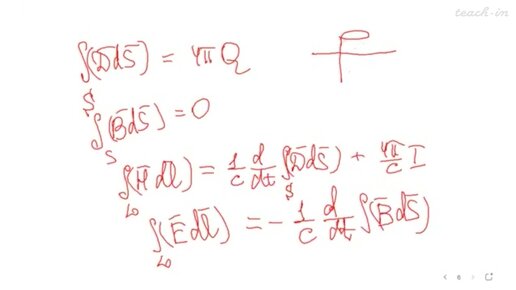 teach-in
∫(D̄dS̄) = 4πQ
S
∫(B̄dS̄) = 0
S
∫(H̄dl̄) = 1/c d/dt ∫(D̄dS̄) + 4π/c I
L₀ S
∫(Ēdl̄) = - 1/c d/dt ∫(B̄dS̄)
L₀
6